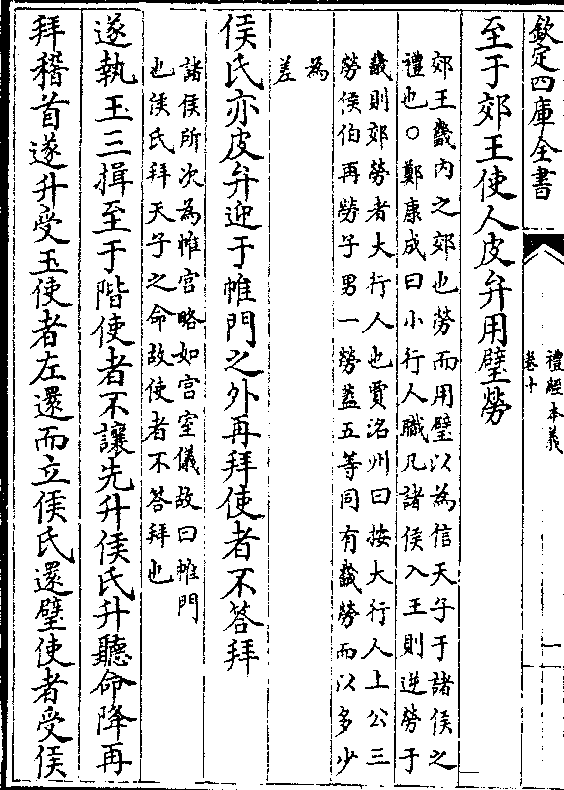 欽定四庫全書
禮經本義
卷十
一
至于郊王使人皮弁用璧勞
郊王畿內之郊也勞而用璧以為信天子于諸侯之
禮也○鄭康成曰小行人職凡諸侯入王則逆勞于
畿則郊勞者大行人也賈洺州曰按大行人上公三
勞侯伯再勞子男一勞葢五等同有畿勞而以多少
為
差
侯氏亦皮弁迎于帷門之外再拜使者不答拜
諸侯所次為帷宮略如宮室儀故曰帷門
也侯氏拜天子之命故使者不答拜也
遂執玉三揖至于階使者不讓先升侯氏升聽命降再
拜稽首遂升受玉使者左還而立侯氏還璧使者受侯